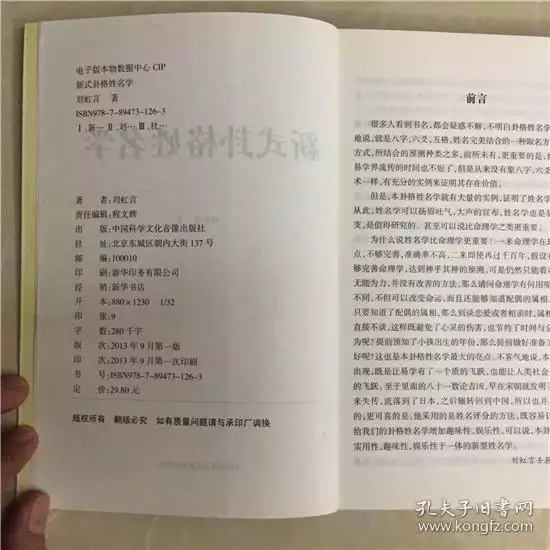 电子版本物数据中心 CIP
新式卦格姓名学
刘虹言 著
ISBN978-7-89473-126-3
Ⅰ,新… Ⅱ,刘… Ⅲ,社…
新式卦格姓名学
著 者:刘虹言
责任编辑:程文辉
出 版:中国科学文化音像出版社
社 址:北京东城区朝内大街 137 号
邮 编:100010
印 刷:新华印务有限公司
经 销:新华书店
开 本:880×1230 1/32
印 张:9
字 数:280 千字
版 次:2013 年 9 月第一版
印 次:2013 年 9 月第一次印刷
书 号:ISBN978-7-89473-126-3
定 价:29.80 元
版权所有 翻版必究 如有质量问题请与承印厂调换
前言
很多人看到书名,都会疑惑不解,不明白卦格姓名
地说,就是八字,六爻,五格,姓名完美结合的一种取名方
方式,所结合的预测种类之多,前所未有,更重要的是,
易学界流传的时间也不短了,但是从来没有象八字,六爻
术一样,有充分的实例来证明其存在价值。
但是,本卦格姓名学就有大量的实例,证明了姓名学
从此,姓名学可以扬眉吐气,大声的宣布,姓名学也是易
支,是值得研究的。甚至可以说比命理学之类更重要。
为什么说姓名学比命理学更重要?一来命理学在
点,不够完善,准确率不高,二来即使再过千百年,假设有
够完善命理学,达到神乎其神的预测,可是仍然只能看
无能为力,并没有改善的方法,那么请问命理学有何用
不同,不但可以改变命运,而且还能够知道配偶的属相
只要知道了配偶的属相,那么到谈恋爱或者相亲时,属相
直接不谈,这样既避免了心灵的伤害,也节约了时间与金
为呢?提前预知了小孩出生的年份,那么提前做好准备
好呢?这也是本卦格姓名学最大的亮点。不客气地说,本
出现,既是让易学有了一个质的飞跃,也能让人类社会
的飞跃,至于里面的八十一数论吉凶,早在宋朝就发明了
来失传,流落到了日本,之后辗转回到中国,所以也可以
的,更可喜的是,他采用的是姓名评分的方法,既容易
给我们的卦格姓名学增加趣味性,娱乐性,可以说,本卦
实用性,趣味性,娱乐性于一体的新型姓名学。
刘虹言壬辰
孔夫子旧书网
kongfz.com